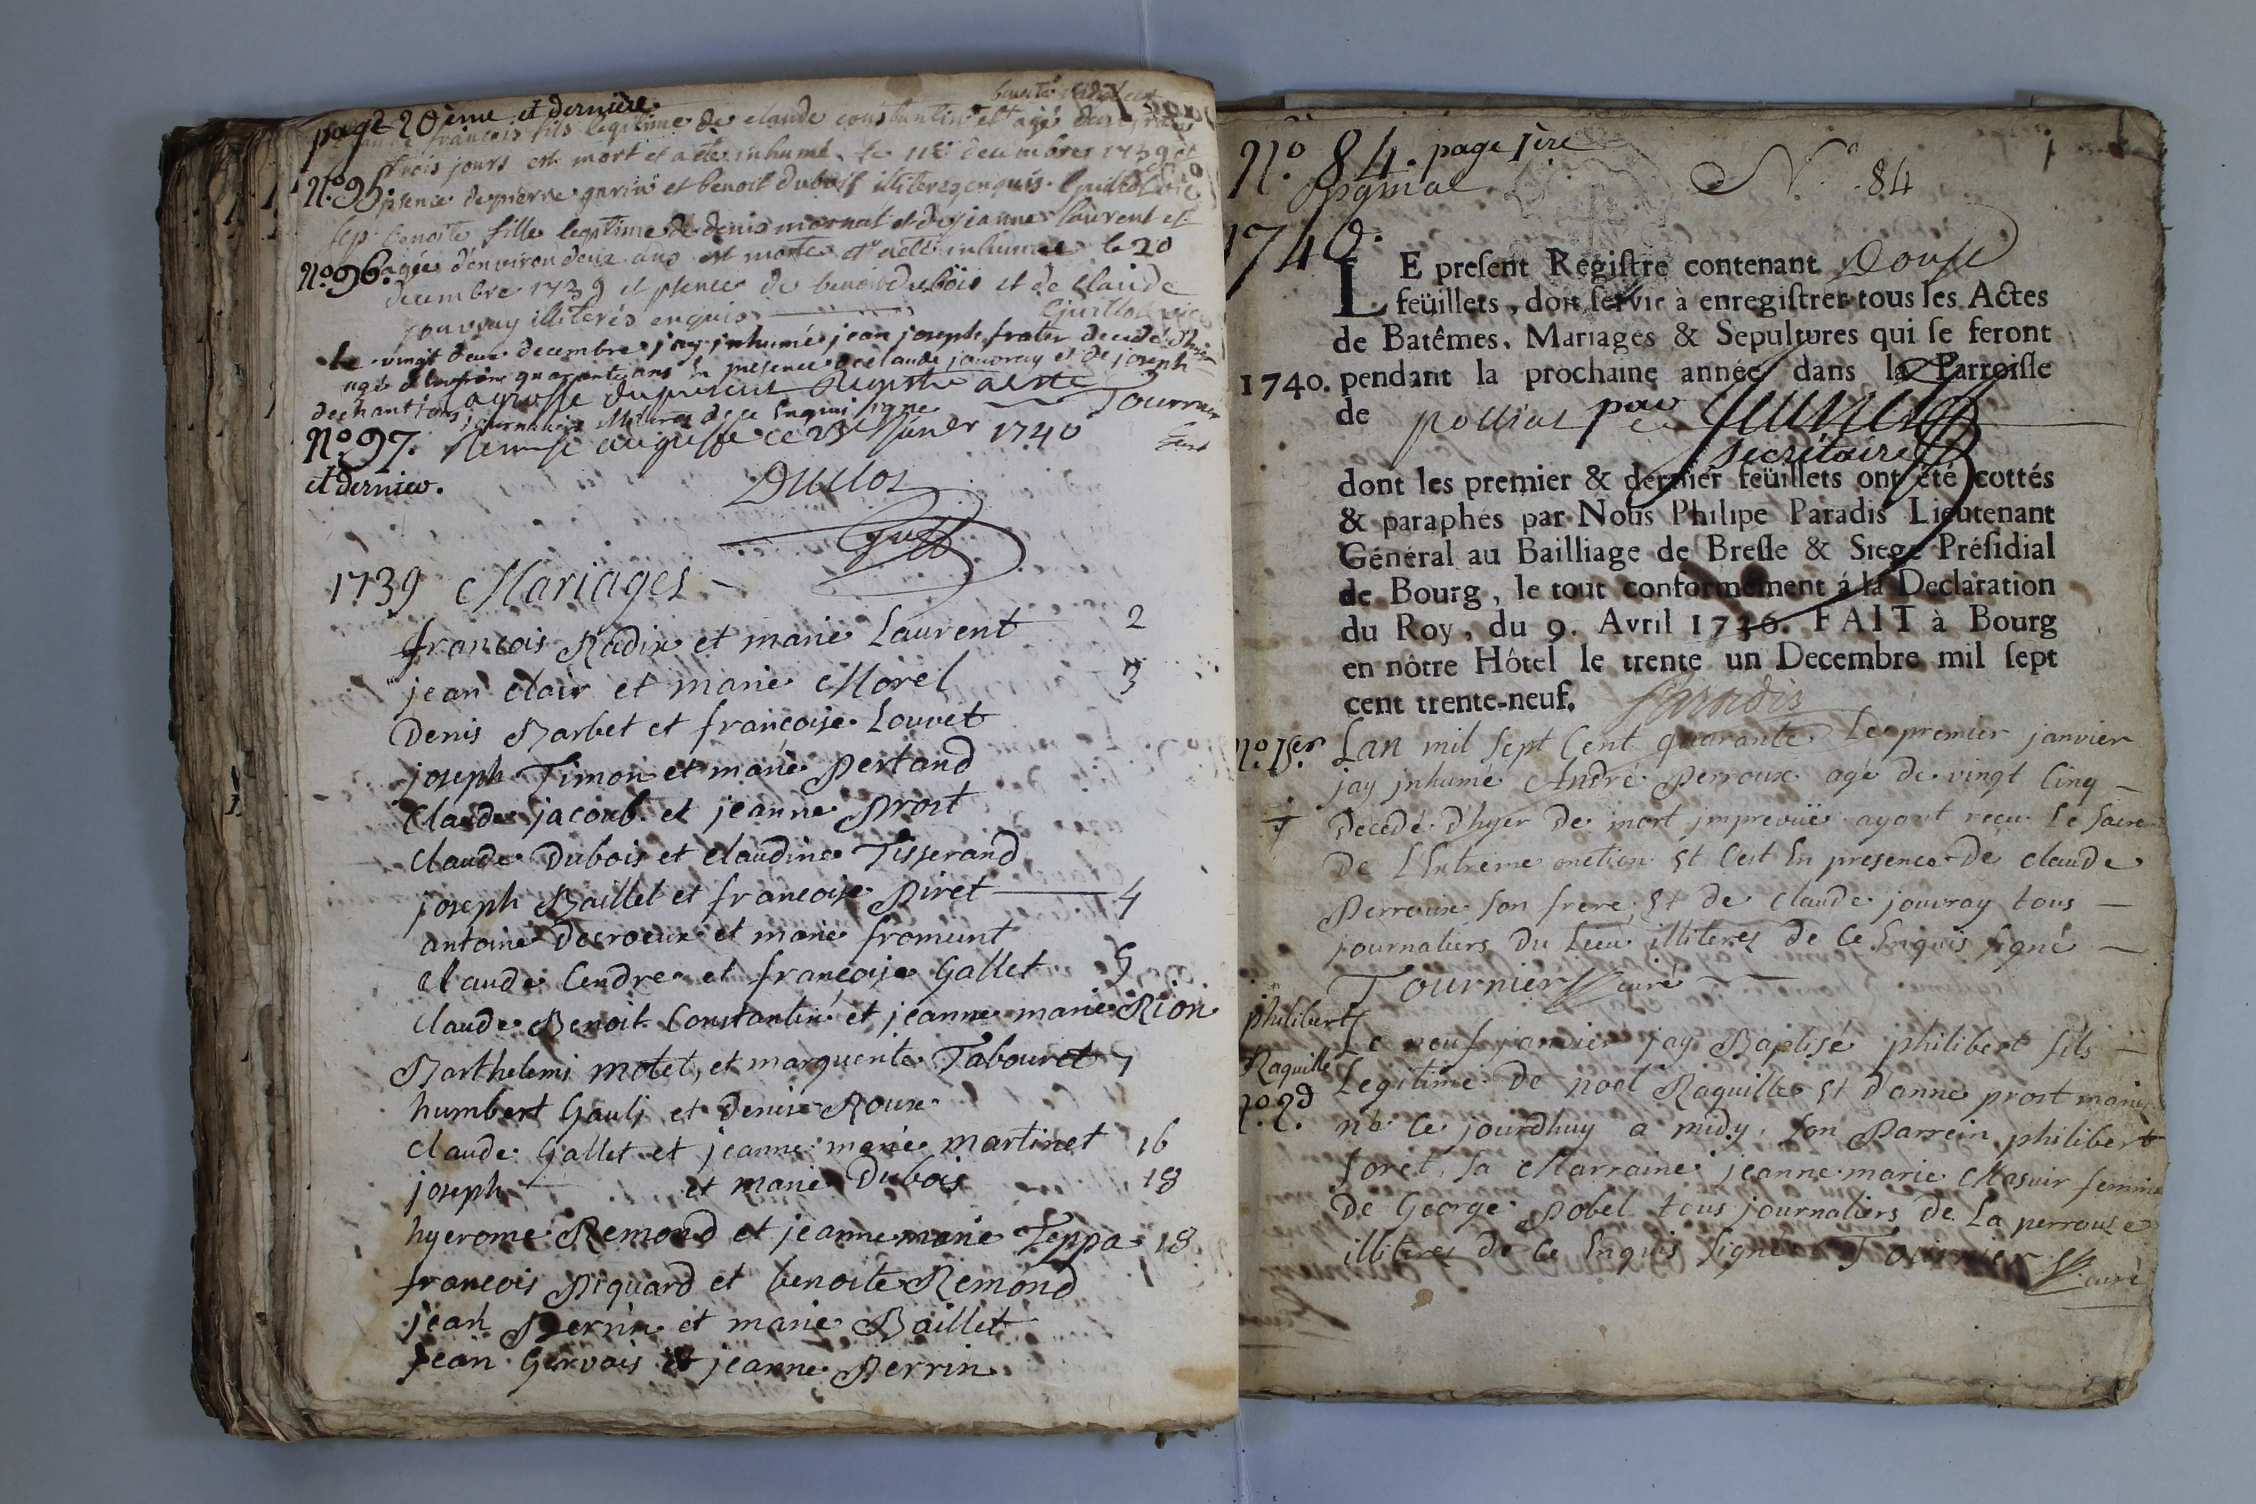 page 20ème et dernière.
françois fils legitime de claude constantin et agé
trois jours est mort et a eté inhumé le 11e decembre 1739 et
No. 95. psence de pierre garin et benoit dubois illiteres enquis. Guillot vic
sep. benoite fille legitime de denis mornat et de jeanne laurent et
No. 96. agée d'environ deux ans est morte et a eté inhumée le 20
decembre 1739 et psence de benoit dubois et de claude
jouvray illiterés enquis Guillot vic
Le vingt deux decembre j'ay inhumé jean joseph frater decedé d'hier
agé d'environ quarante ans En presence de claude jouvray et de joseph
dechant journaliers illiteres de ce Enquis signe Tournier
La grosse du present Registre a esté
No. 97. Remise au greffe ce 23 janer 1740
et dernier.
Duclos
1739 Mariages
francois Radix et marie Laurent 2
jean clair et marie Morel 3
Denis Barbet et francoise Louvet
joseph Timon et marie Pertand
Claude jacoub et jeanne Prost
Claude Dubois et claudine Tisserand
joseph Baillet et francoise Piret 4
antoine Decroeux et marie froment
Claude Cendre et françoise Gallet 5
Claude Benoit Constantin et jeanne marie Rion
Barthelemi motet, et marguerite Tabouret 7
humbert Gauli et denise Roux
claude Gallet et jeanne marie martinet 16
joseph et marie Dubois 18
hyerome Remond et jeanne marie Teppa 18
francois Piquard et benoite Remond
jean Perrin et marie Baillet
jean Gervais et jeanne Perrin
No. 84. page 1ère
No. 84
1740.
LE present Registre contenant Douse
feüillets, doit servir à enregistrer tous les Actes
de Batêmes, Mariages & Sepultures qui se feront
1740. pendant la prochaine année dans la Parroisse
de polliat par
secrétaire
dont les premier & dernier feüillets ont été cottés
& paraphés par Nous Philipe Paradis Lieutenant
Général au Bailliage de Bresse & Siege Présidial
de Bourg, le tout conformément à la Declaration
du Roy, du 9. Avril 1736. FAIT à Bourg
en nôtre Hôtel le trente un Decembre mil sept
cent trente-neuf. Paradis
No. 1er. Lan mil sept Cent quarante Le premier janvier
jay inhumé André Perroux agé de vingt Cinq
Decedé d'hyer De mort imprevüe ayant recu Le sacre
De L'Extreme onction Et C'est En presence De claude
Perroux son frere Et de Claude jouvray tous
journaliers du Lieu illiteres de Ce Enquis signé
Tournier curé
philibert Le neuf janvier jay Baptisé philibert fils
Raquille Legitime De noel Raquille Et d'anne prost mariés
no. 2d né Ce jourdhuy a midy. son Parrein philibert
foret, sa Marraine jeanne marie Masuir femme
De George Pobel tous journaliers de La perrouse
illiteres de Ce Enquis signé Tournier curé